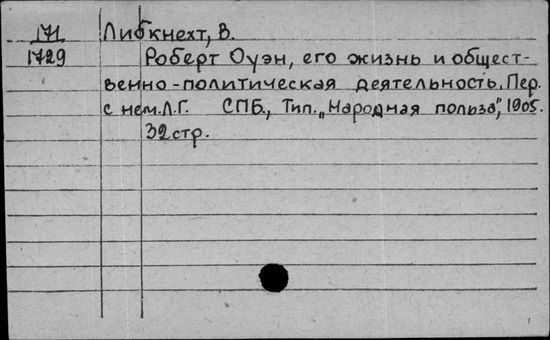 171 Либкнехт, В.
1729 Роберт Оуэн, его жизнь и общест-
венно-политическая деятельность. Пер.
с нем. Л.Г. СПБ., Тип. „Народная польза", 1905.
32 стр.